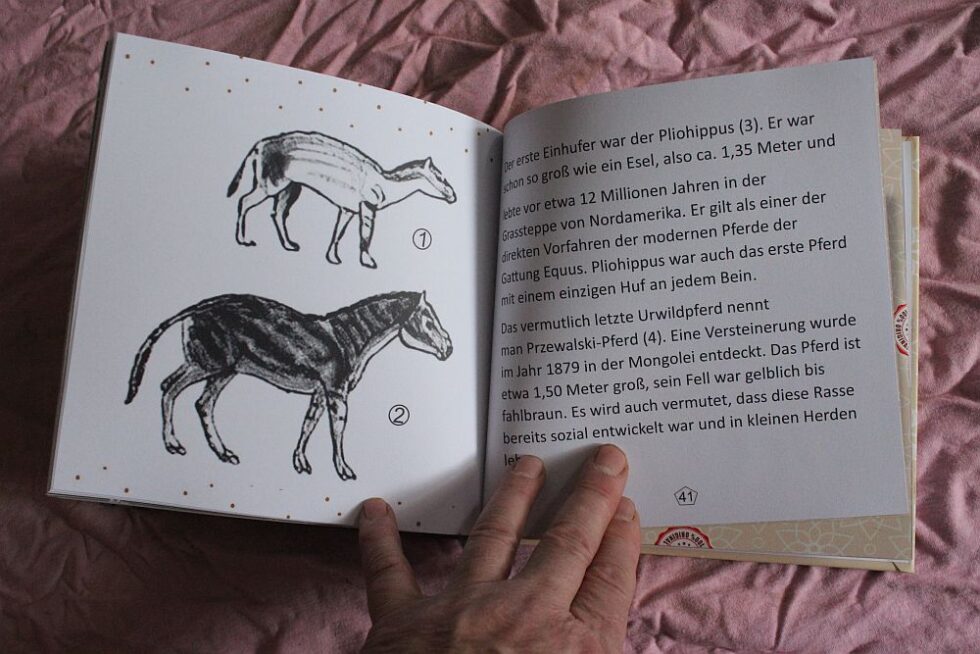 ①
②
Der erste Einhufer war der Pliohippus (3). Er war
schon so groß wie ein Esel, also ca. 1,35 Meter und
lebte vor etwa 12 Millionen Jahren in der
Grassteppe von Nordamerika. Er gilt als einer der
direkten Vorfahren der modernen Pferde der
Gattung Equus. Pliohippus war auch das erste Pferd
mit einem einzigen Huf an jedem Bein.
Das vermutlich letzte Urwildpferd nennt
man Przewalski-Pferd (4). Eine Versteinerung wurde
im Jahr 1879 in der Mongolei entdeckt. Das Pferd ist
etwa 1,50 Meter groß, sein Fell war gelblich bis
fahlbraun. Es wird auch vermutet, dass diese Rasse
bereits sozial entwickelt war und in kleinen Herden
41